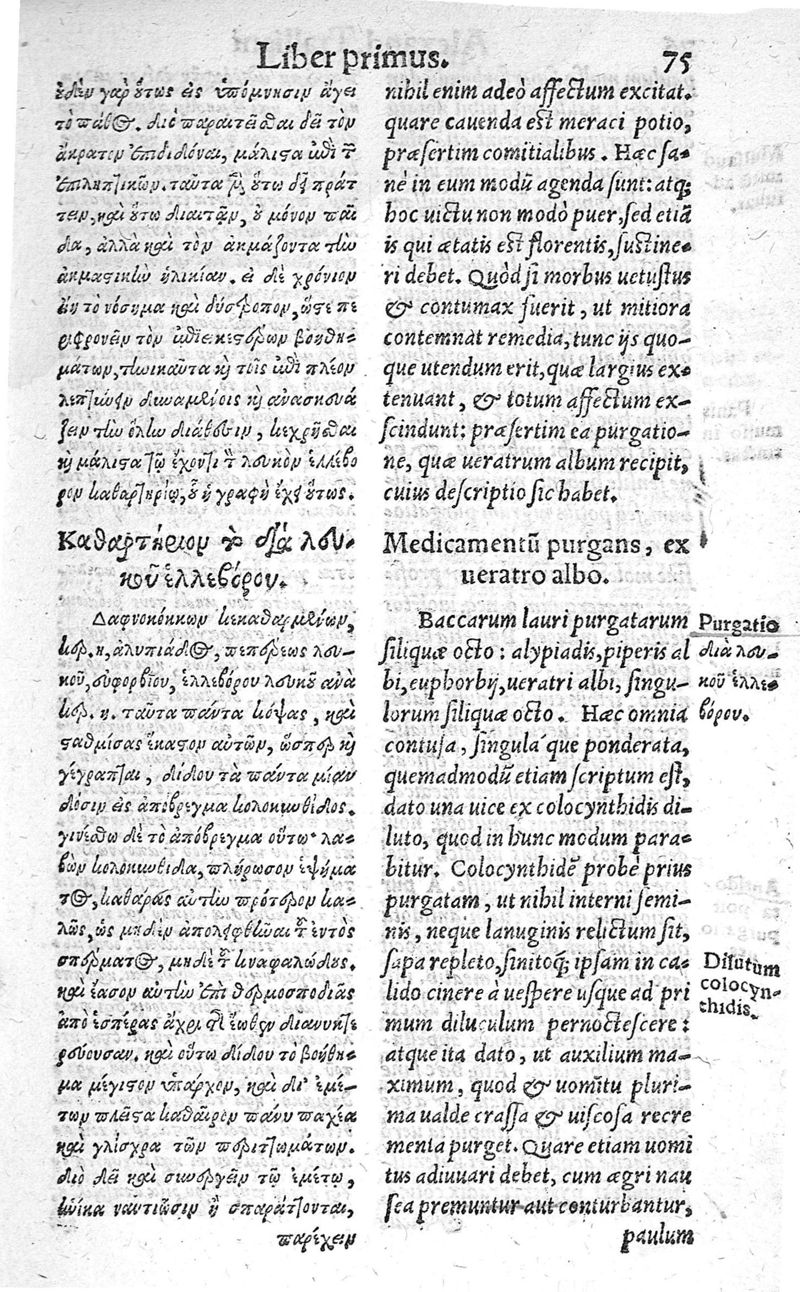 Liber primus. 75
οὐδὲν γὰρ οὕτως εἰς ὑπόμνησιν ἄγει
τὸ πάθος. διὸ παραιτεῖσθαι δεῖ τὸν
ἄκρατον ἐπιδιδόναι, μάλιστα ἐπὶ τῶν
ἐπιληπτικῶν. ταῦτα μὲν οὕτω δεῖ πράτ
τειν, καὶ οὕτω διαιτᾷν, οὐ μόνον παῖ
δα, ἀλλὰ καὶ τὸν ἀκμάζοντα τὴν
ἀκμαστικὴν ἡλικίαν. εἰ δὲ χρόνιον
ἦν τὸ νόσημα καὶ δύστροπον, ὥστε πε
ριφρονεῖν τὸν ἐπιεικεστέρων βοηθη-
μάτων, τηνικαῦτα καὶ τοῖς ἐπὶ πλέον
λεπτύνειν δυναμένοις καὶ ἀνασκευά
ζειν τὴν ὅλην διάθεσιν, κεχρῆσθαι
καὶ μάλιστα τῷ ἔχοντι τὸν λευκὸν ἐλλέβο
ρον καθαρτηρίῳ, οὗ ἡ γραφὴ ἔχει οὕτως.
Καθαρτήριον τὸ διὰ λευ-
κοῦ ἑλλεβόρου.
Δαφνοκόκκων κεκαθαρμένων,
κερ. η, ἀλυπιάδος, πεπέρεως λευ-
κοῦ, εὐφορβίου, ἑλλεβόρου λευκοῦ ἀνὰ
κερ. η. ταῦτα πάντα κόψας, καὶ
σταθμίσας ἕκαστον αὐτῶν, ὥσπερ καὶ
γέγραπται, δίδου τὰ πάντα μίαν
δόσιν εἰς ἀπόβρεγμα κολοκυνθίδος.
γινέσθω δὲ τὸ ἀπόβρεγμα οὕτω· λα-
βὼν κολοκυνθίδα, πλήρωσον ἑψήμα
τος, καθαρὰς αὐτὴν πρότερον κα-
λῶς, ὡς μηδὲν ἀπολειφθῆναι τοῦ ἐντὸς
σπέρματος, μηδὲ τοῦ κναφαλώδους.
καὶ ἔασον αὐτὴν ἐπὶ θερμοσποδιᾶς
ἀπὸ ἑσπέρας ἄχρι τοῦ ἕωθεν διανυκτε
ρεύουσαν. καὶ οὕτω δίδου τὸ βοήθη-
μα μέγιστον ὑπάρχον, καὶ δι' ἐμέ-
των πλεῖστα καθαῖρον πάνυ παχέα
καὶ γλίσχρα τῶν περιττωμάτων.
διὸ δεῖ καὶ συνεργεῖν τῷ ἐμέτῳ,
ἡνίκα ναυτιῶσιν ἢ σπαράττονται,
παρέχειν
nihil enim adeò affectum excitat.
quare cauenda est meraci potio,
præsertim comitialibus. Hæc sa-
nè in eum modũ agenda sunt: atq;
hoc uictu non modò puer, sed etiã
is qui ætatis est florentis, sustine-
ri debet. Quòd si morbus uetustus
& contumax fuerit, ut mitiora
contemnat remedia, tunc ijs quo-
que utendum erit, quæ largius ex-
tenuant, & totum affectum ex-
scindunt: præsertim ea purgatio-
ne, quæ ueratrum album recipit,
cuius descriptio sic habet.
Medicamentũ purgans, ex
ueratro albo.
Baccarum lauri purgatarum
siliquæ octo: alypiadis, piperis al
bi, euphorbij, ueratri albi, singu-
lorum siliquæ octo. Hæc omnia
contusa, singula´que ponderata,
quemadmodũ etiam scriptum est,
dato una uice ex colocynthidis di-
luto, quod in hunc modum para-
bitur. Colocynthidẽ probè prius
purgatam, ut nihil interni semi-
nis, neque lanuginis relictum sit,
sapa repleto, sinitoq; ipsam in ca-
lido cinere à uespere usque ad pri
mum diluculum pernoctescere:
atque ita dato, ut auxilium ma-
ximum, quod & uomitu pluri-
ma ualde crassa & uiscosa recre
menta purget. Quare etiam uomi
tus adiuuari debet, cum ægri nau
sea premuntur aut conturbantur,
paulum
Purgatio
διὰ λευ-
κοῦ ἑλλε-
βόρου.
Dilutum
colocyn-
thidis.